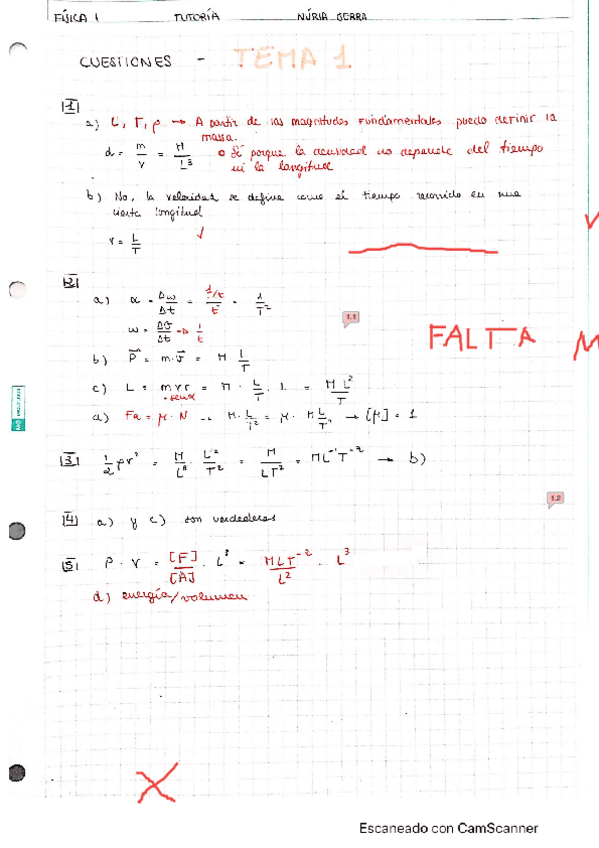 FÍSICA 1 TUTORÍA NÚRIA SERRA
CUESTIONES - TEMA 1
1
a) L, T, ρ → A partir de las magnitudes fundamentales puedo definir la
masa.
d = m/V = M/L³ o Sí porque la densidad no depende del tiempo
ni la longitud
b) No, la velocidad se define como el tiempo recorrido en una
cierta longitud
v = L/T
2
a) α = Δω/Δt = 1/t/t = 1/T²
ω = Δσ/Δt → 1/t
1.1
FALTA M
b) P = m·v = M L/T
c) L = m v r = M · L/T · L = M L²/T
· senα
d) Fr = μ · N → M · L/T² = μ · M L/T² → [μ] = 1
3 1/2 ρv² = M/L³ · L²/T² = M/LT² = ML⁻¹T⁻² → b)
1.2
4 a) y c) son verdaderas
5 P · V = [F]/[A] · L³ = MLT⁻²/L² · L³
d) energía/volumen
Escaneado con CamScanner